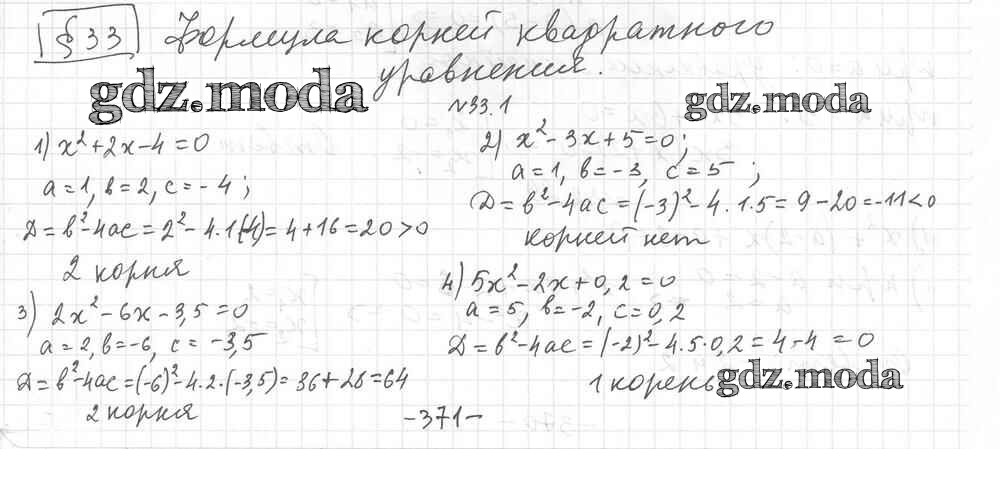 § 33 Формула корней квадратного
уравнения.
gdz.moda
№33.1
gdz.moda
1) x²+2x-4=0
a=1, в=2, c=-4;
D=в²-4ac=2²-4.1(-4)=4+16=20>0
2 корня
2) x²-3x+5=0;
a=1, в=-3, c=5;
D=в²-4ac=(-3)²-4.1.5=9-20=-11<0
корней нет
3) 2x²-6x-3,5=0
a=2, в=-6, c=-3,5
D=в²-4ac=(-6)²-4.2.(-3,5)=36+28=64
2 корня
4) 5x²-2x+0,2=0
a=5, в=-2, c=0,2
D=в²-4ac=(-2)²-4.5.0,2=4-4=0
1 корень
gdz.moda
-371-